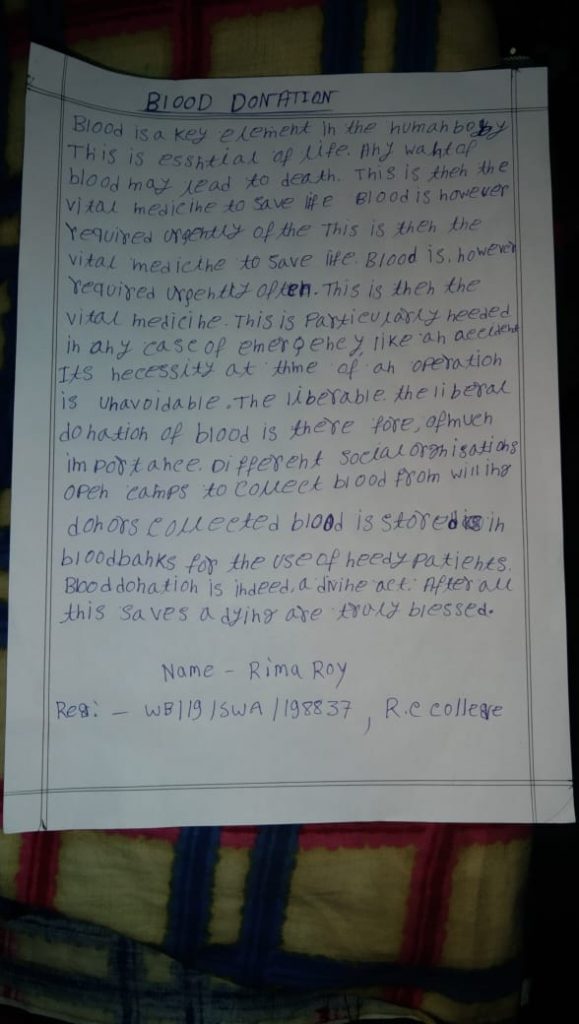 BLOOD DONATION
Blood is a key element in the human body
This is esshtial of life. Any want of
blood may lead to death. This is then the
vital medicine to save life Blood is however
required urgently of the This is then the
vital medicthe to save life. Blood is, however
required urgently often. This is then the
vital medicine. This is Particularly needed
in any case of emergency, like an accident
Its necessity at thme of an operation
is unavoidable. The liberable. the liberal
donation of blood is there fore, of much
importance. Different social orgnisations
open camps to collect blood from willing
donors collected blood is stored in
bloodbanks for the use of needy patients.
Blood donation is indeed, a divine act. After all
this saves a dying are truly blessed.
Name - Rima Roy
Reg: - WB/19/SWA/198837, R.C college